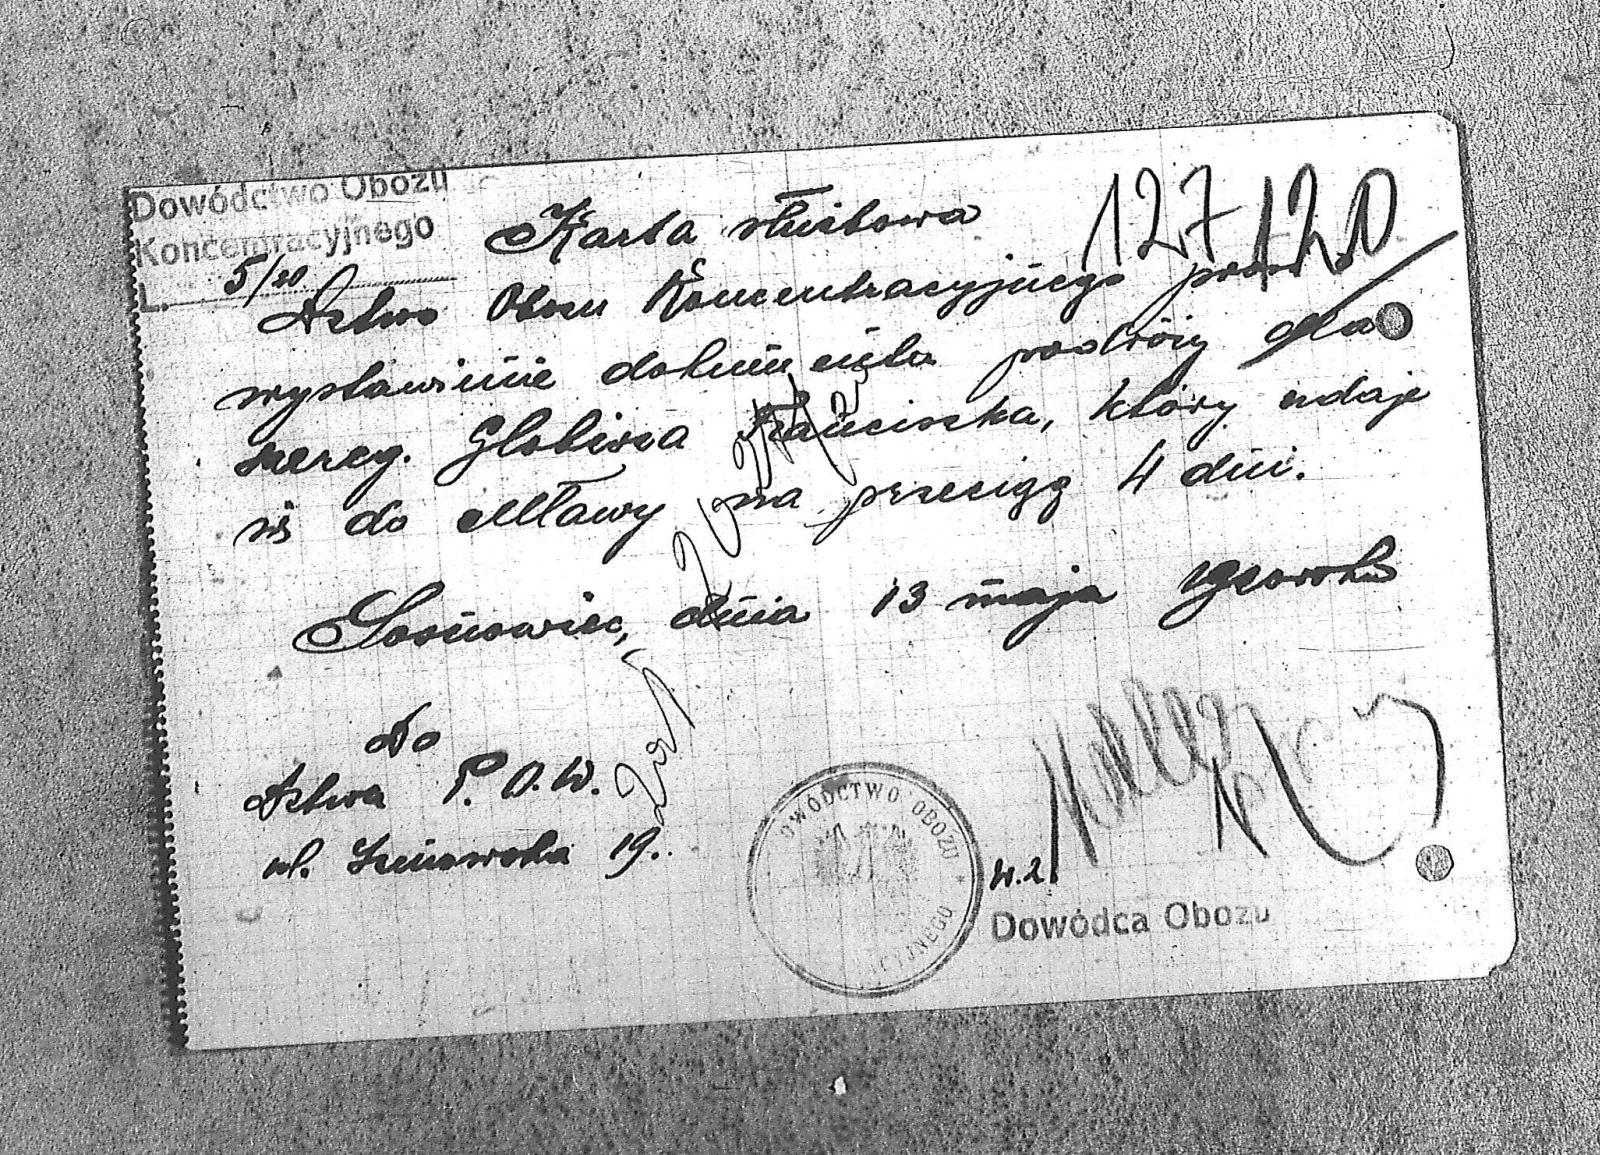 Dowództwo Obozu
Koncentracyjnego
L. 5/20
Karta służbowa
127 120
Dztwo Obozu Koncentracyjnego prosi o
wystawienie dokumenta podróży dla
szereg. Globisza Franciszka, który udaje
się do Mławy na przeciąg 4 dni.
Sosnowiec, dnia 13 maja 1920 roku
Do
Dztwa P.O.W.
ul. 19.
DOWÓDCTWO OBOZU
CYJNEGO
w.z.
Dowódca Obozu